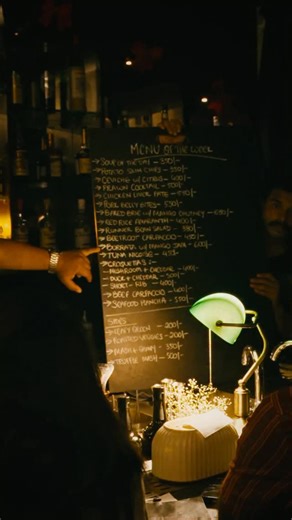 MENU OF THE WEEK
→ SOUP OF THE DAY - 350/-
→ POTATO SKIN CHIPS - 350/-
→ CEVICHE OF CITRUS - 400/-
→ PRAWN COCKTAIL - 500/-
→ CHICKEN LIVER PATE -
→ PORK BELLY BITES - 550/-
→ BAKED BRIE W/ MANGO CHUTNEY -
→ RED RICE - 400/-
→ SUMMER BOWL SALAD - 380/-
→ BEETROOT CARPACCIO - 430/-
→ BURRATA W/ MANGO - 600/-
→ TUNA NICOISE - 450/-
→ CROQUETAS :-
- MUSHROOM & CHEDDAR - 400/-
- DUCK & CHEDDAR - 500/-
- SHORT RIB - 600/-
→ BEEF CARPACCIO - 600/-
→ SEAFOOD PLANCHA - 550/-
SIDES
→ LEAFY GREEN - 200/-
→ ROASTED VEGGIES - 200/-
→ MASH & GRAVY - 350/-
→ TRUFFLE MASH - 500/-